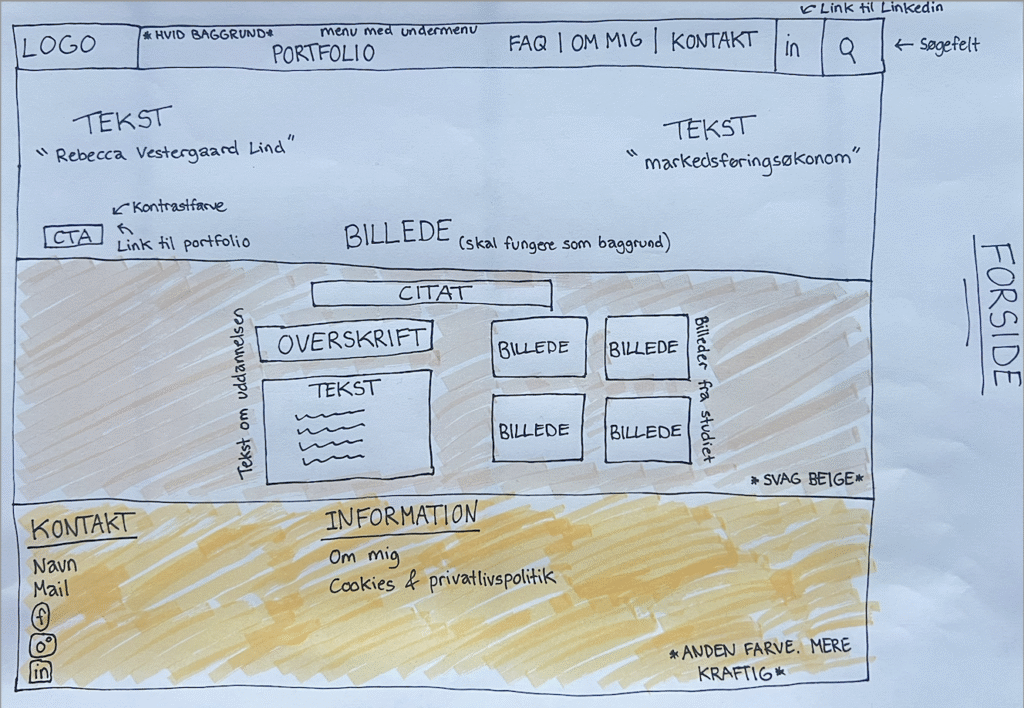 Link til Linkedin
LOGO
*HVID BAGGRUND*
menu med undermenu
PORTFOLIO
FAQ | OM MIG | KONTAKT
in
Søgefelt
TEKST
"Rebecca Vestergaard Lind"
TEKST
"markedsføringsøkonom"
Kontrastfarve
CTA
Link til portfolio
BILLEDE (skal fungere som baggrund)
FORSIDE
CITAT
Tekst om uddannelsen
OVERSKRIFT
TEKST
BILLEDE
BILLEDE
BILLEDE
BILLEDE
Billeder fra studiet
*SVAG BEIGE*
KONTAKT
Navn
Mail
f
in
INFORMATION
Om mig
Cookies & privatlivspolitik
*ANDEN FARVE. MERE
KRAFTIG*